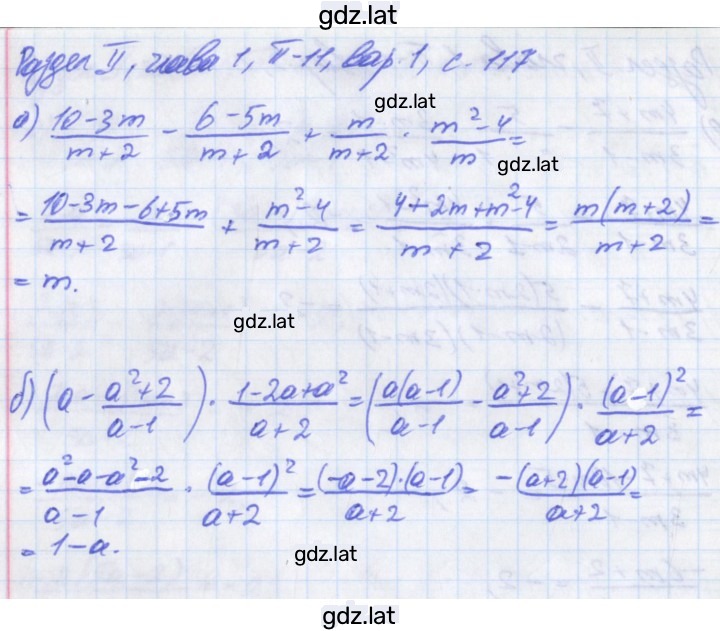 gdz.lat
Раздел II, глава 1, П-11, вар. 1, с. 117
gdz.lat
а) (10-3m)/(m+2) - (6-5m)/(m+2) + m/(m+2) · (m²-4)/m =
gdz.lat
= (10-3m-6+5m)/(m+2) + (m²-4)/(m+2) = (4+2m+m²-4)/(m+2) = m(m+2)/(m+2) =
= m.
gdz.lat
б) (a - (a²+2)/(a-1)) · (1-2a+a²)/(a+2) = (a(a-1)/(a-1) - (a²+2)/(a-1)) · (a-1)²/(a+2) =
= (a²-a-a²-2)/(a-1) · (a-1)²/(a+2) = (-a-2)·(a-1)/(a+2) = -(a+2)(a-1)/(a+2) =
= 1-a.
gdz.lat
gdz.lat